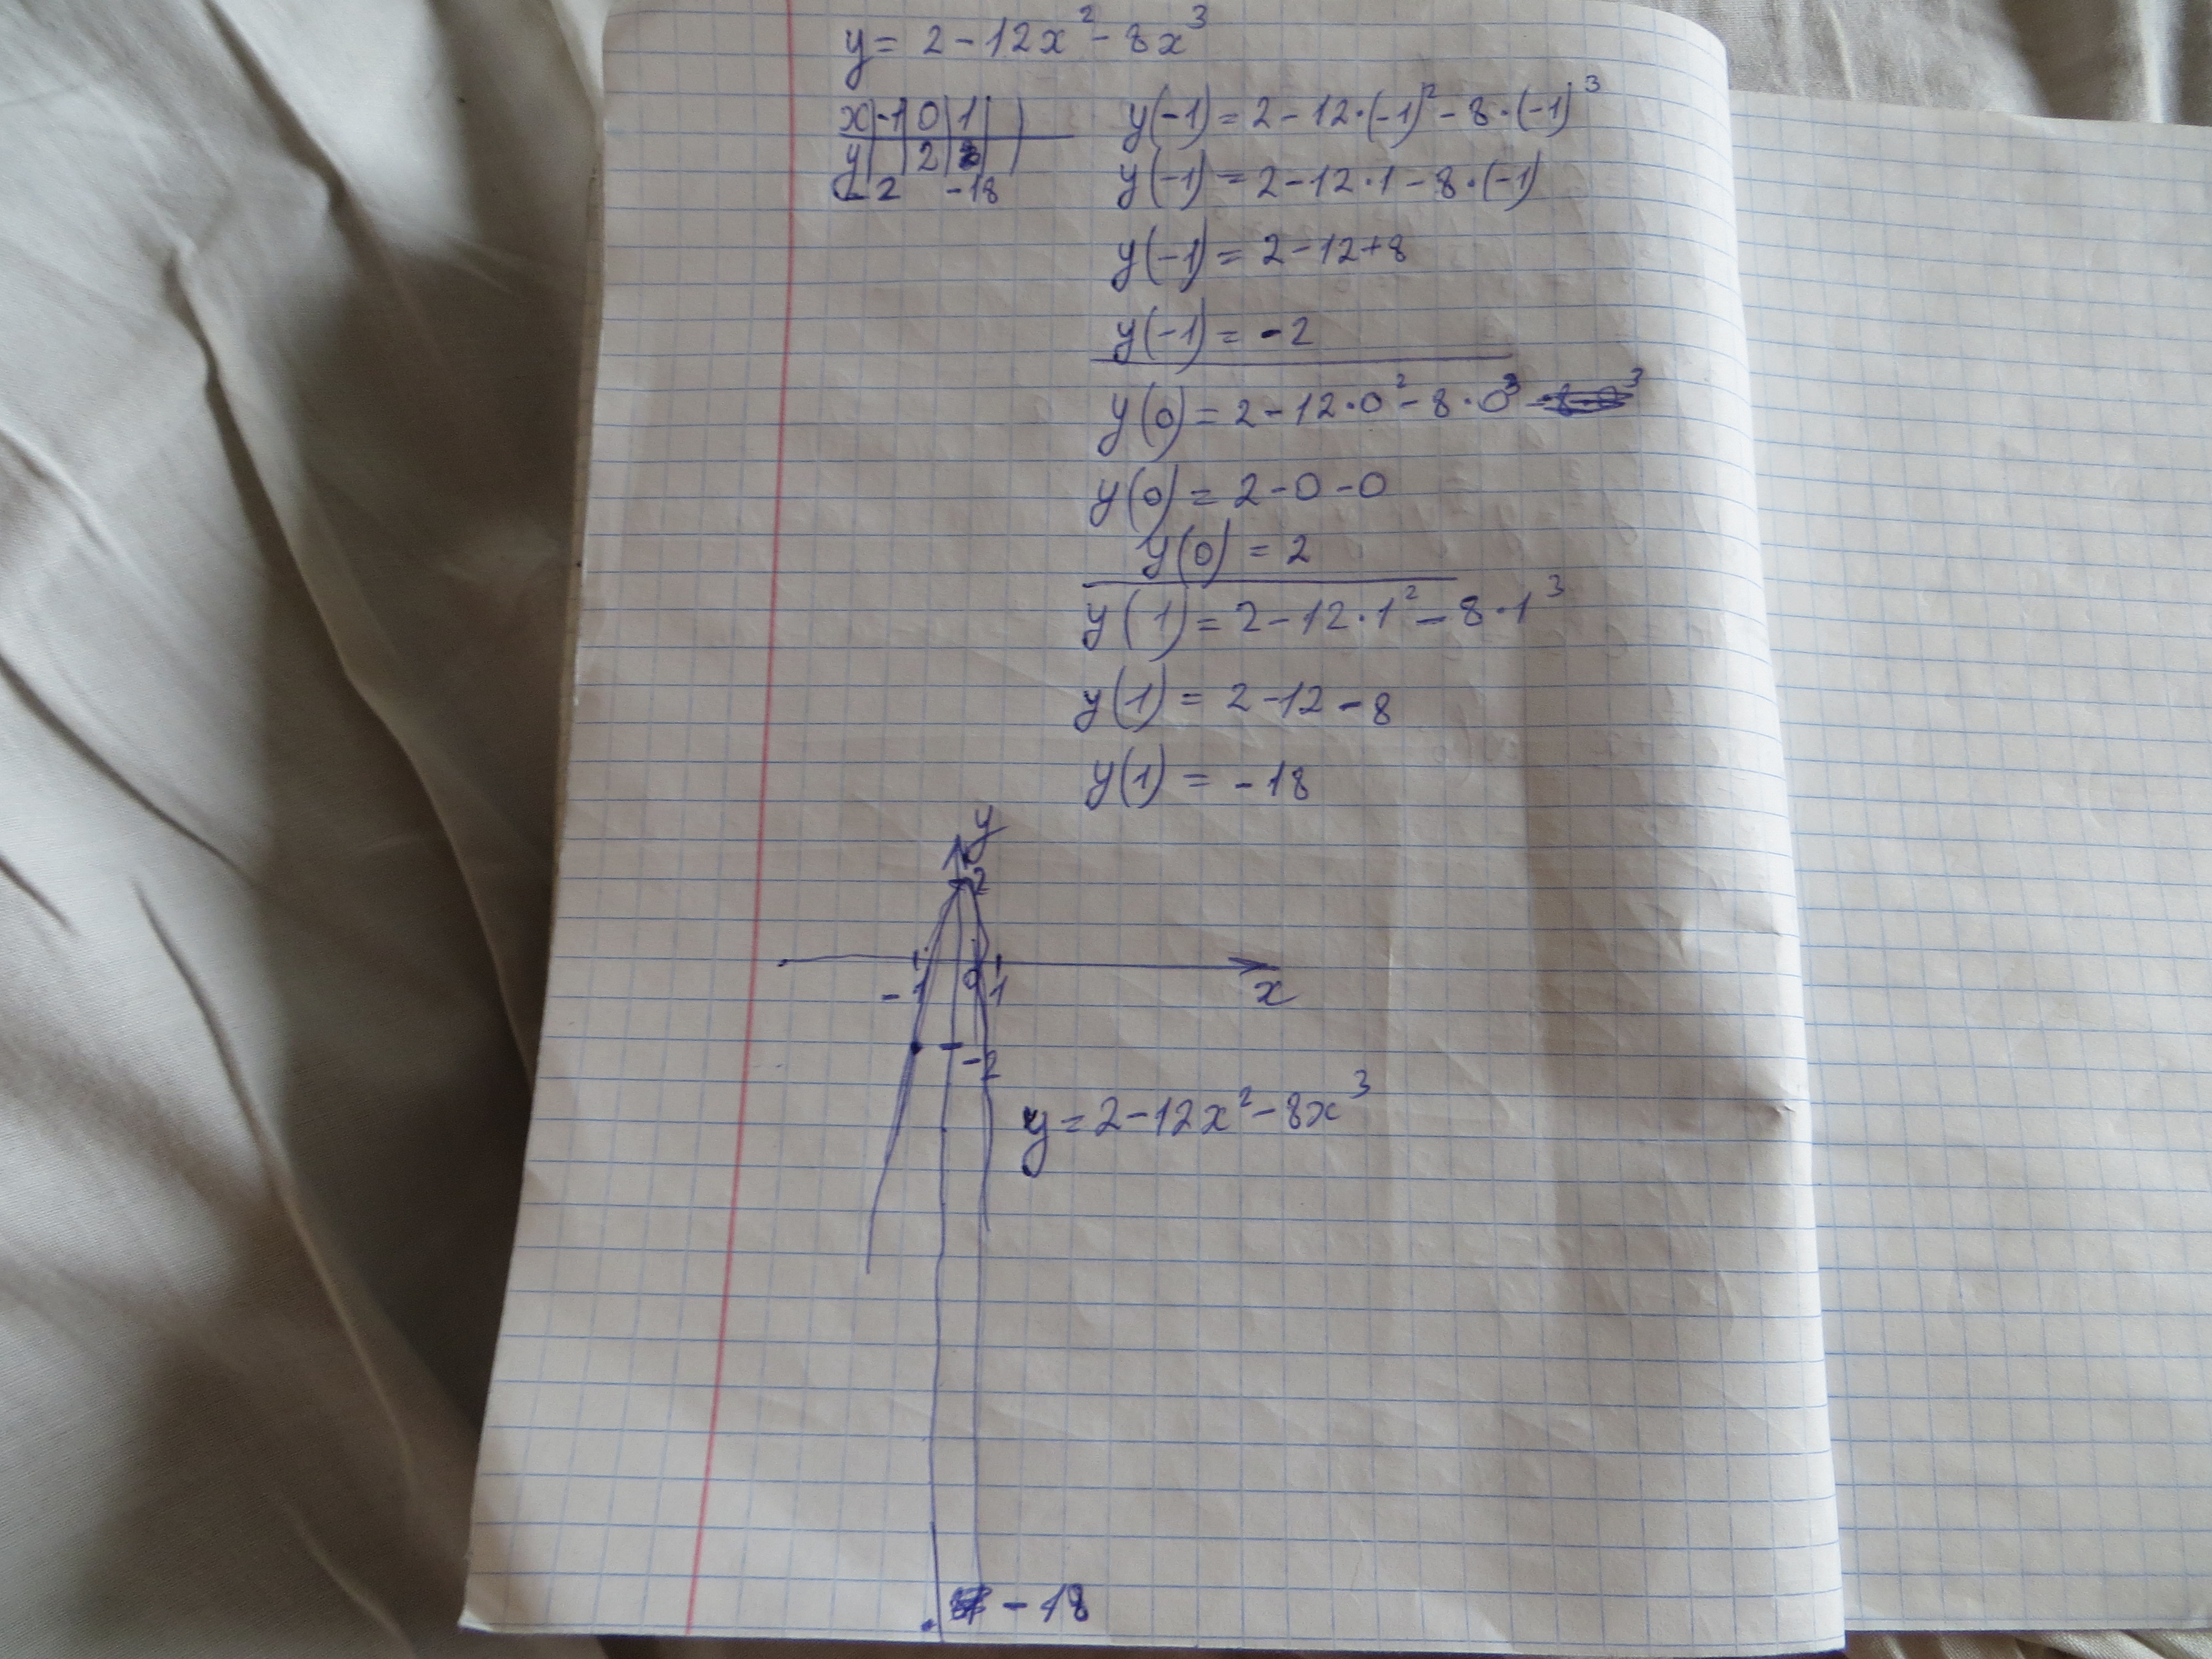 y = 2 - 12x² - 8x³
x | -1 | 0 | 1 |
y | | 2 | |
-2 -18
y(-1) = 2 - 12·(-1)² - 8·(-1)³
y(-1) = 2 - 12·1 - 8·(-1)
y(-1) = 2 - 12 + 8
y(-1) = -2
y(0) = 2 - 12·0² - 8·0³
y(0) = 2 - 0 - 0
y(0) = 2
y(1) = 2 - 12·1² - 8·1³
y(1) = 2 - 12 - 8
y(1) = -18
y
2
-1 0 1 x
-2
y = 2 - 12x² - 8x³
-18